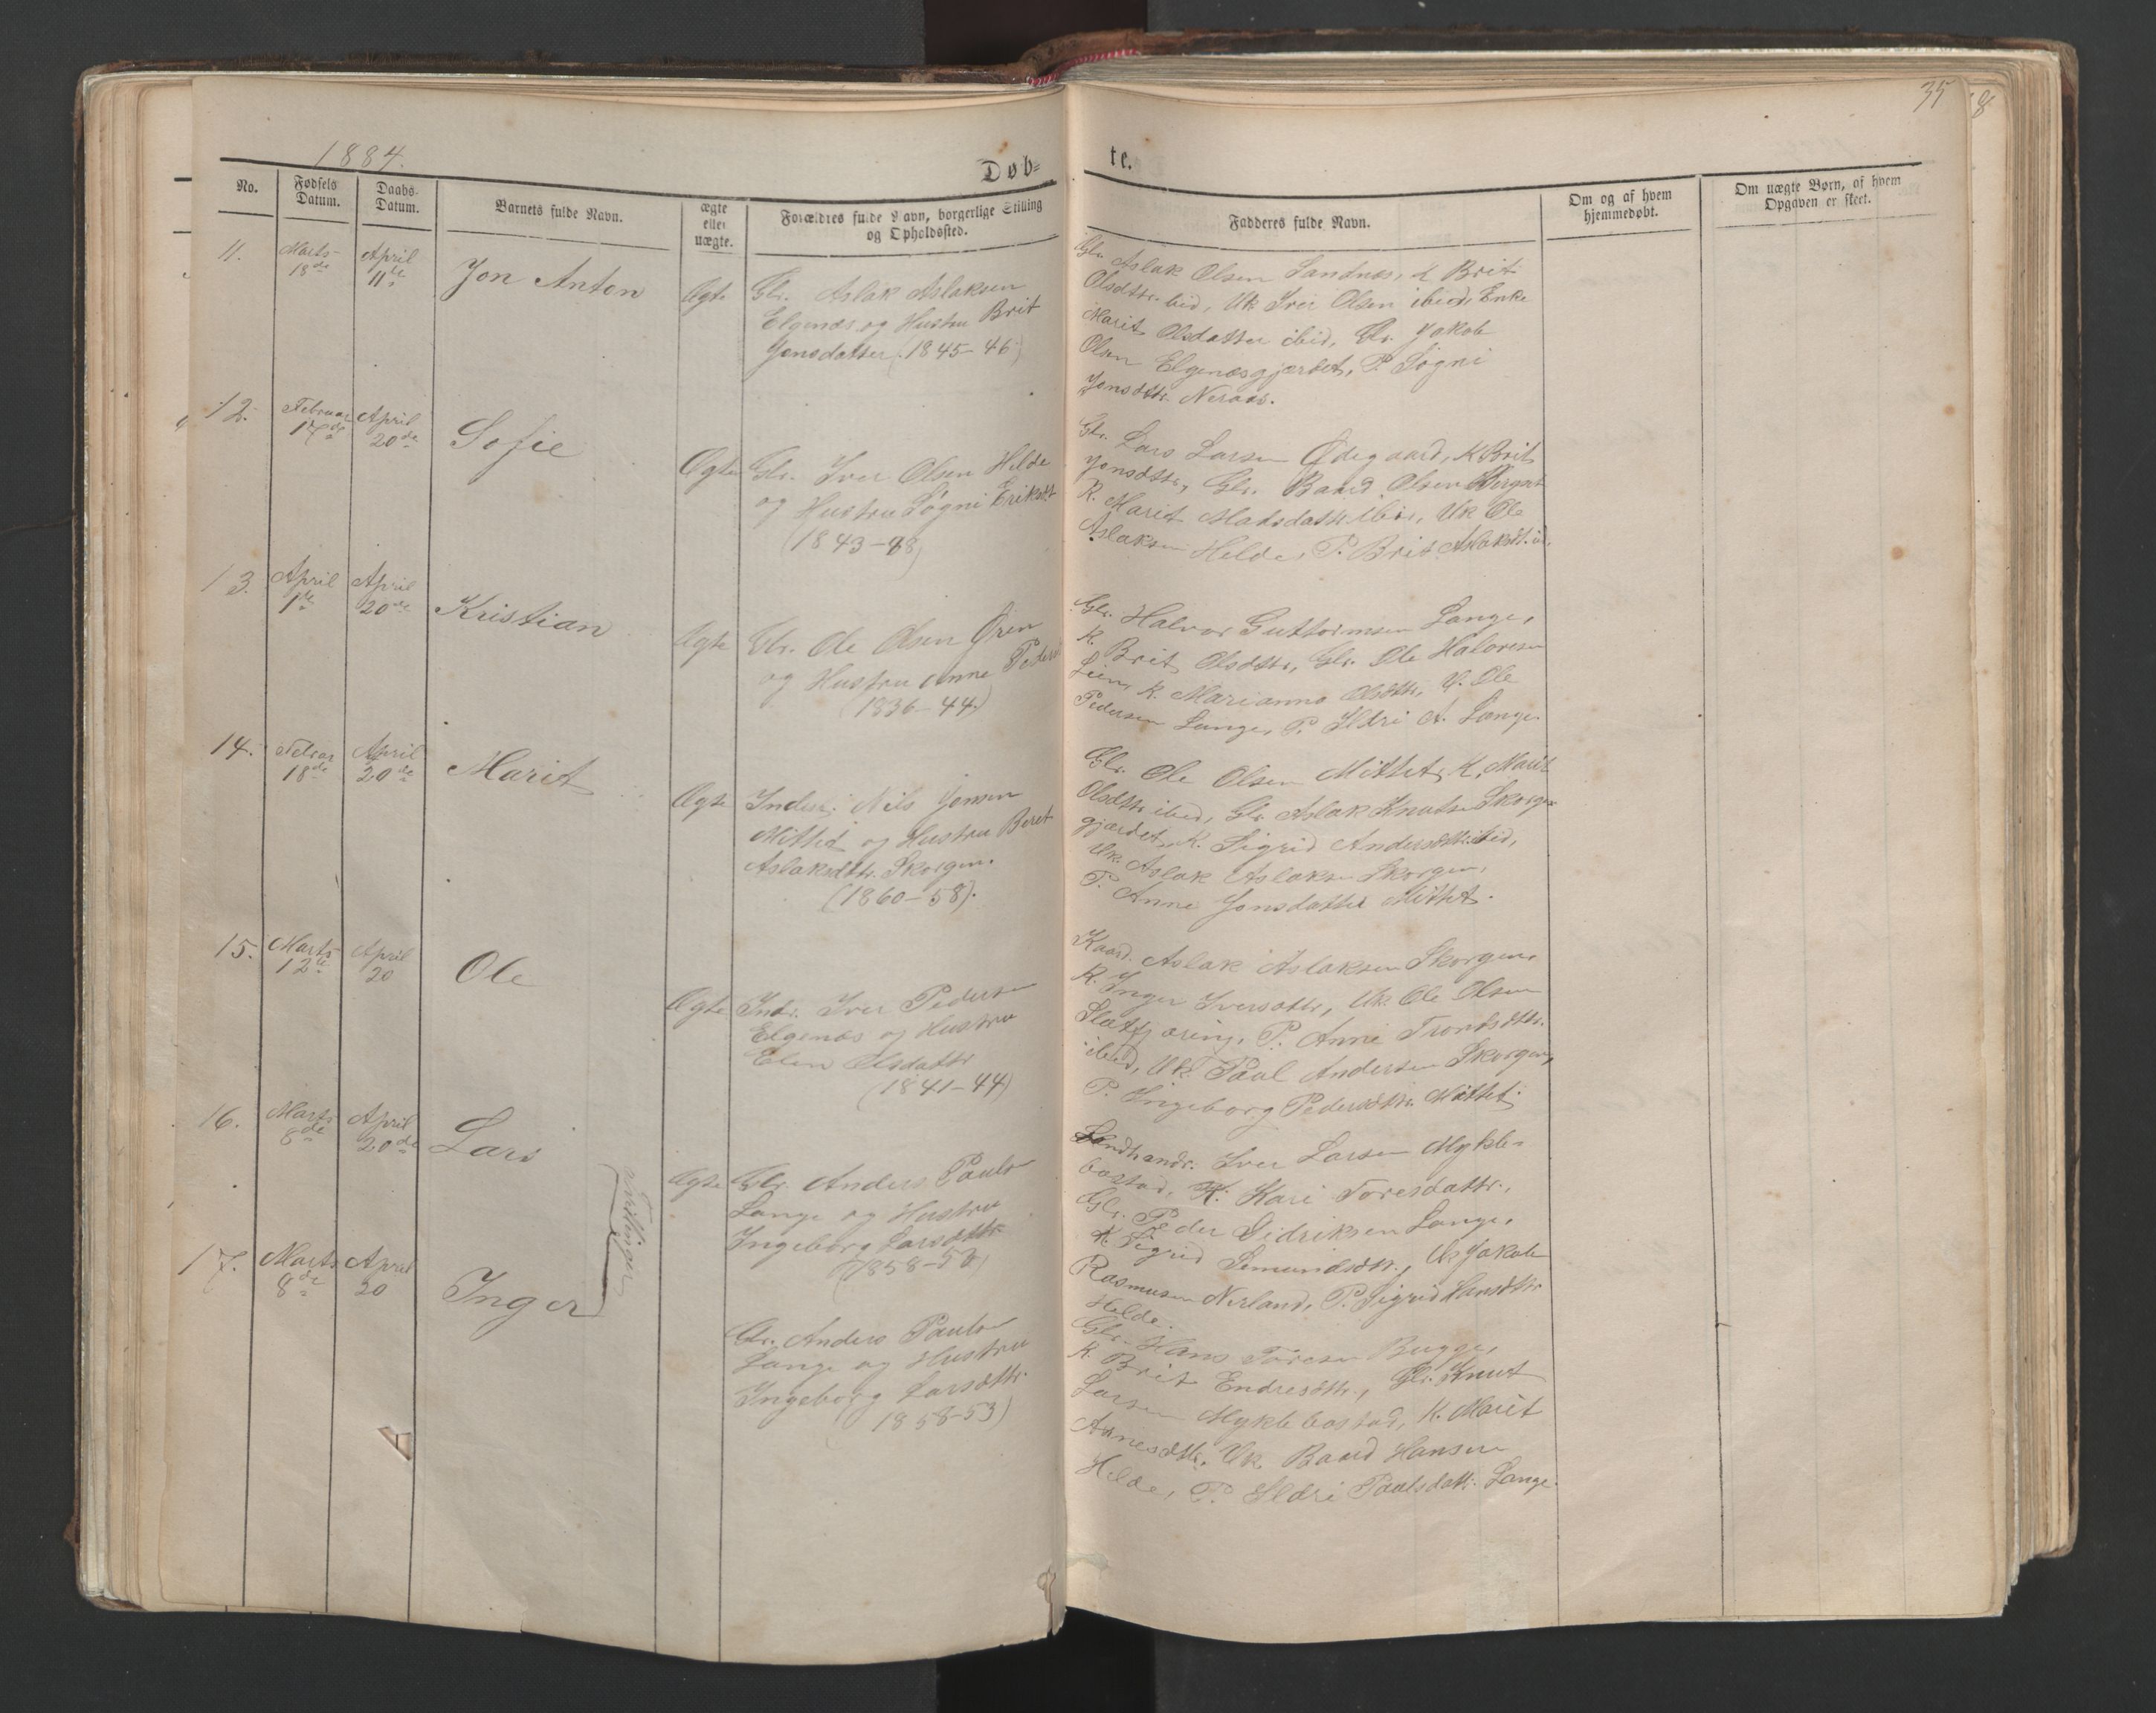 1884.
Døb=
te.
35
8
No.
Fødsels Datum.
Daabs-Datum.
Barnets fulde Navn.
ægte eller uægte.
Forældres fulde Navn, borgerlige Stilling og Opholdssted.
Fadderes fulde Navn.
Om og af hvem hjemmedøbt.
Om uægte Børn, af hvem Opgaven er skeet.
11.
Marts 18de
April 11te
Jon Anton
Ægte
Gbr. Aslak Aslaksen
Elgenæs og Hustru Brit
Jonsdatter (1845-46)
Gbr. Aslak Olsen Sandnæs, K Brit
Olsdttr. ibid, Uk. Iver Olsen ibid, Enke
Marit Olsdatter ibid, Gbr. Jakob
Olsen Elgenæsgjærdet, P. Søgni
Jonsdttr. Neraas.
12.
Februar 17de
April 20de
Sofie
Ægte
Gbr. Iver Olsen Hilde
og Hustru Søgni Eriksdtt
(1843-48)
Gbr. Lars Larsen Ødegaard, K Brit
Jonsdttr., Gbr. Baard Olsen
K. Marit Matsdattr. ibid, Uk Ole
Aslaksen Helde, P. Brit Aslaksdt. ib.
13.
April 1de
April 20de
Kristian
Ægte
Gbr. Ole Olsen Øren
og Hustru Anne Pedersd
(1836-44.)
Gbr. Halvor Guttormsen Lange,
K. Brit Olsdttr., Gbr. Ole Halvorsen
Lien, K. Marianna Olsdttr., U. Ole
Pedersen Lange, P. Ildri A. Lange.
14.
Febuar 18de
April 20de
Marit
Ægte
Inders. Nils Jonsen
Mittet og Hustru Beret
Aslaksdttr. Skorgen.
(1860-58).
Gbr. Ole Olsen Mittet, K. Marit
Olsdttr ibid, Gbr. Aslak Knutsen Skorge=
gjærdet, K. Sigrid Andersdttr. ibid,
Uk. Aslak Aslaksen Skorgen,
P. Anne Jonsdatter Mittet.
15.
Marts 12te
April 20
Ole
Ægte
Indr. Iver Pedersen
Elgenæs og Hustru
Elen Olsdattr
(1841-44)
Kaard. Aslak Aslaksen Skorgen,
K. Inger Iversdttr., Uk. Ole Olsen
Sletfjæring, P. Anne Trondsdttr.
ibid, Uk. Paul Andersen Skorgen,
P. Ingeborg Pedersdttr. Mittet.
16.
Marts 8de
April 20de
Lars
Tvillinger
Ægte
Gbr. Anders Paulsen
Lange og Hustru
Ingeborg Larsdttr.
(1858-53)
Landhandr. Iver Larsen Mykle=
bostad, K. Kari Toresdattr.,
Gbr. Peder Didriksen Lange,
K. Sigrid Semundsdttr., Uk Jakob
Rasmusen Nerland, P. Sigrid Hansdttr
Helde.
17.
Marts 8de
April 20
Inger
Gbr. Anders Paulsen
Lange og Hustru
Ingeborg Larsdttr.
(1858-53)
Gbr. Hans Toresen Bugge,
K. Brit Endresdttr., Gbr. Knut
Larsen Myklebostad, K. Marit
Arnesdttr., Uk. Baard Hansen
Helde, P. Ildri Paulsdatt. Lange.